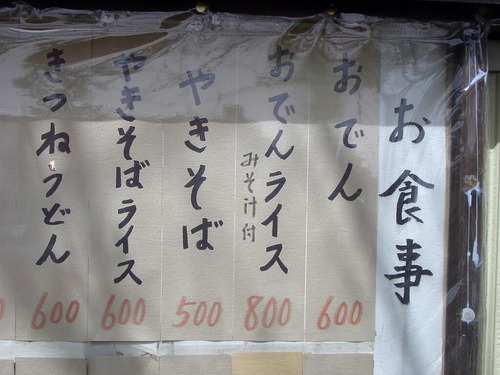 お食事
おでん
600
おでんライス
みそ汁付
800
やきそば
500
やきそばライス
600
きつねうどん
600